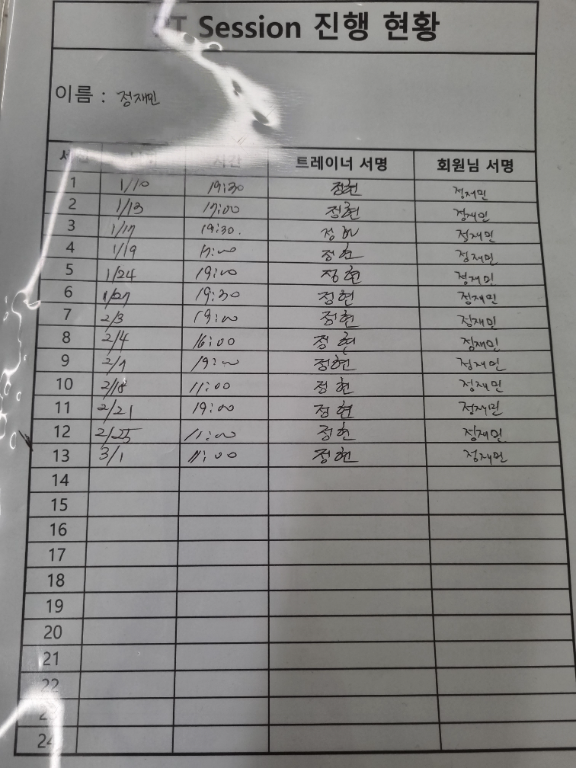 PT Session 진행 현황
이름 : 정재민
시간 트레이너 서명 회원님 서명
1 1/10 19:30 정현 정재민
2 1/13 17:00 정현 정재민
3 1/17 19:30. 정현 정재민
4 1/19 정현 정재민
5 1/24 19:00 정현 정재민
6 1/27 19:30 정현 정재민
7 2/3 19:00 정현 정재민
8 2/4 16:00 정현 정재민
9 2/7 19:00 정현 정재민
10 2/18 11:00 정현 정재민
11 2/21 19:00 정현 정재민
12 2/25 11:00 정현 정재민
13 3/1 11:00 정현 정재민
14
15
16
17
18
19
20
21
22
23
24